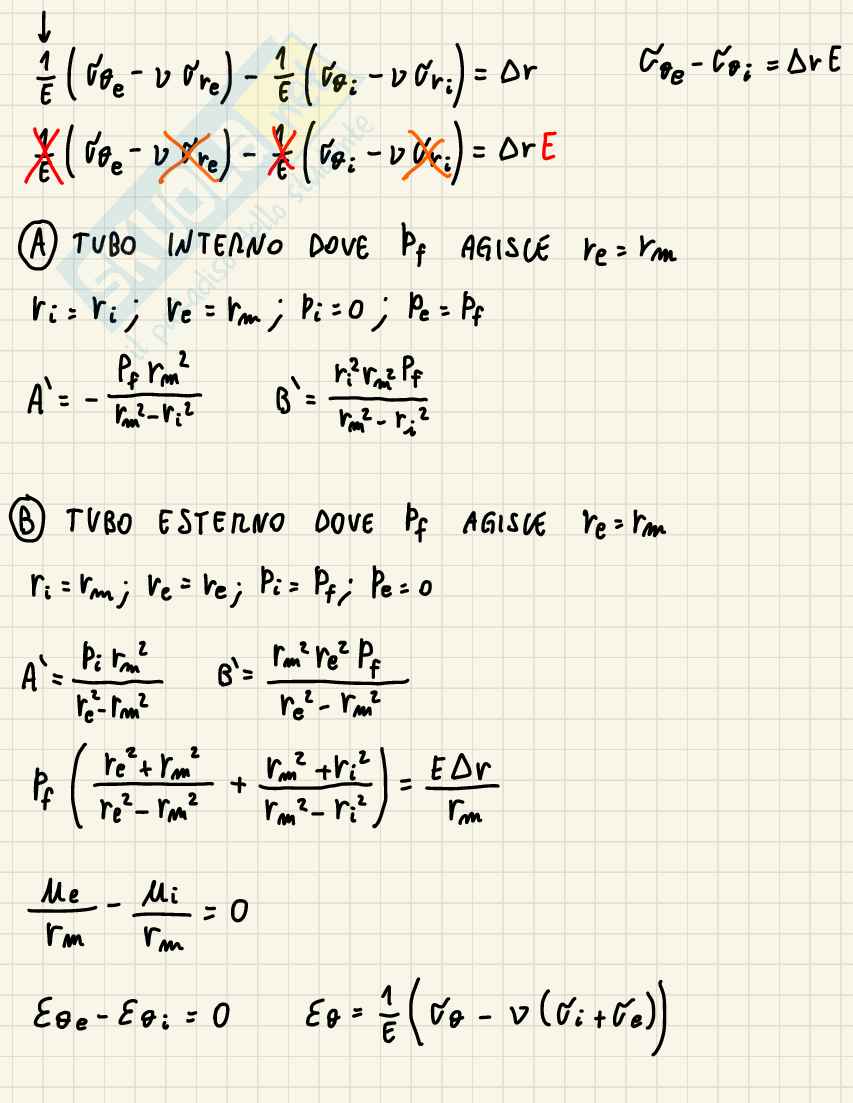 ↓
1/E (σθe - ν σre) - 1/E (σθi - ν σri) = Δr    σθe - σθi = Δr E
1/E (σθe - ν σre) - 1/E (σθi - ν σri) = Δr E
SKUOLA.net
il paradiso dello studente
Ⓐ TUBO INTERNO DOVE Pf AGISCE re = rm
ri = ri; re = rm; Pi = 0; Pe = Pf
A' = - Pf rm² / (rm² - ri²)    B' = ri² rm² Pf / (rm² - ri²)
Ⓑ TUBO ESTERNO DOVE Pf AGISCE re = rm
ri = rm; re = re; Pi = Pf; Pe = 0
A' = Pi rm² / (re² - rm²)    B' = rm² re² Pf / (re² - rm²)
Pf ( (re² + rm²) / (re² - rm²) + (rm² + ri²) / (rm² - ri²) ) = E Δr / rm
μe / rm - μi / rm = 0
εθe - εθi = 0    εθ = 1/E (σθ - ν (σi + σe))